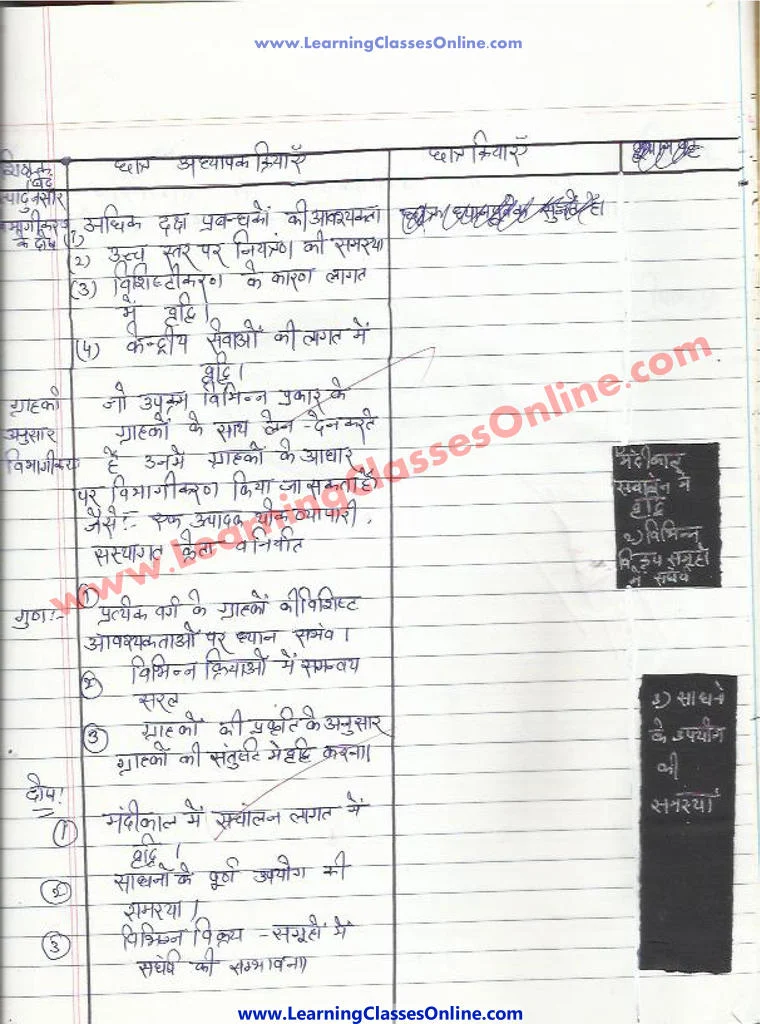 www.LearningClassesOnline.com
छात्र अध्यापक क्रियाएँ
छात्र क्रियाएँ
उत्पादनुसार
विभागीकरण
के दोष
(1) अधिक दक्ष प्रबन्धकों की आवश्यकता
(2) उच्च स्तर पर नियत्रंण की समस्या
(3) विशिष्टीकरण के कारण लागत
में वृद्वि।
(4) केन्द्रीय सेवाओं की लागत में
वृद्वि।
ग्राहको
अनुसार
विभागीकरण
जो उपक्रम विभिन्न प्रकार के
ग्राहकों के साथ लेन-देन करते
हैं उनमें ग्राहकों के आधार
पर विभागीकरण किया जा सकता है।
जैसे:- उत्पादक थोक व्यापारी,
सस्थागत क्रेता
गुण:-
① प्रत्येक वर्ग के ग्राहकों की विशिष्ट
आवश्यकताओं पर ध्यान सभंव।
② विभिन्न क्रियाओं में समन्वय
सरल
③ ग्राहकों की प्रकृति के अनुसार
ग्राहकों की संतुष्टि में वृद्वि करना।
दोष:
① मंदीकाल में सचांलन लागत में
वृद्वि।
② साधनों के पूर्ण उपयोग की
समस्या।
③ विभिन्न विक्रय-समूहों में
सघंर्ष की सम्भावना।
मंदीकाल
सचालन में
वृद्वि
२) विभिन्न
विक्रय समूहों
में सघंर्ष
3) साधनो
के उपयोग
की
समस्या
www.LearningClassesOnline.com
www.LearningClassesOnline.com